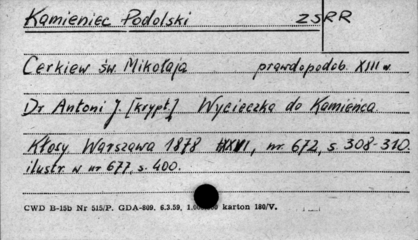 Kamieniec Podolski ZSRR
Cerkiew św. Mikołaja prawdopodob. XIII w.
Dr Antoni J. [krypt.] Wycieczka do Kamieńca
Kłosy Warszawa 1878 XXVI, nr. 672, s. 308-310.
ilustr. w nr 677, s. 400.
CWD B-15b Nr 515/P. GDA-809. 6.3.59. karton 180/V.